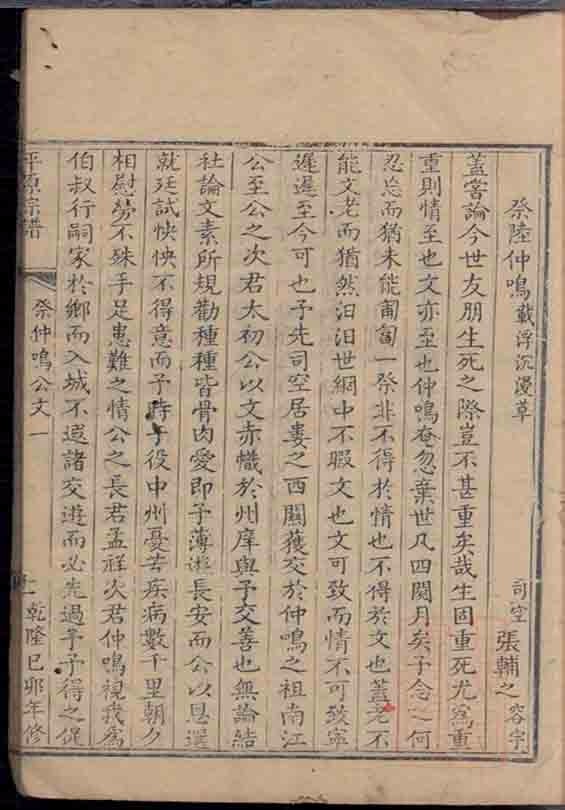 祭陸仲鳴 載浮沉漫草
司空 張輔之 容宇
蓋嘗論今世友朋生死之際豈不甚重矣哉生固重死尤爲重
重則情至也文亦至也仲鳴奄忽棄世凡四閱月矣予念之何
忍忘而猶未能匍匐一祭非不得於情也不得於文也蓋老不
能文老而猶然汨汨世網中不暇文也文可致而情不可致寧
遲遲至今可也予先司空居婁之西關獲交於仲鳴之祖南江
公至公之次君太初公以文赤幟於州庠與予交善也無論結
社論文素所規勸種種皆骨肉愛即予薄遊長安而公以恩選
就廷試怏怏不得意而予時予役中州憂苦疾病數千里朝夕
相慰勞不殊手足患難之情公之長君孟祥次君仲鳴視我爲
伯叔行嗣家於鄉而入城不遑諸交遊而必先過予予得之促
平原宗譜
祭仲鳴公文 一
乾隆己卯年修